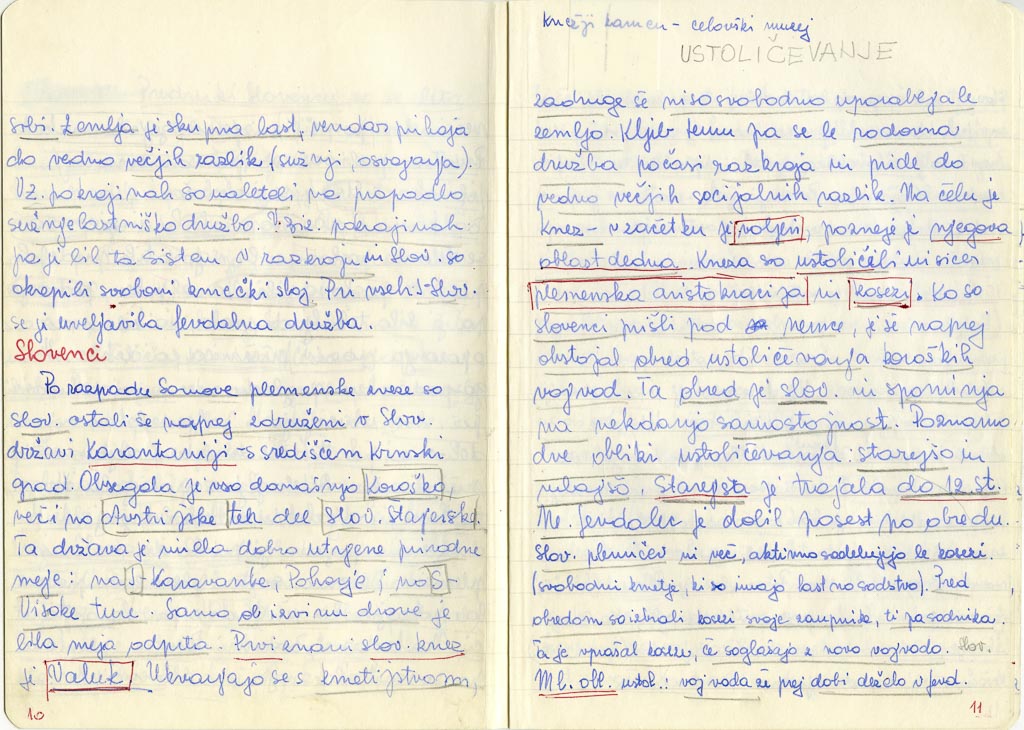 srbi. Zemlja je skupna last, vendar prihaja
do vedno večjih razlik (sužnji, osvajanja).
V z. pokrajinah so naleteli na propadlo
sužnjelastniško družbo. V pokrajinah
pa je bil ta sistem v razkroju in slov. so
okrepili svoboni kmečki sloj. Pri vseh J-Slov.
se je uveljavila fevdalna družba.
Slovenci
Po razpadu Samove plemenske zveze so
slov. ostali še naprej združeni v Slov.
državi Karantaniji - s središčem Krnski
grad. Obsegala je vso današnjo Koroško,
večino Avstrijske teh del Slov. Štajerske.
Ta država je imela dobro utrjene prirodne
meje: na J-Karavanke, Pohorje; na S-
Visoke ture. Samo ob izviru drave je
bila meja odprta. Prvi znani slov. knez
je Valuk. Ukvarjajo se s kmetijstvom,
10
Knežji kamen - celovški muzej
USTOLIČEVANJE
zadruge še niso svobodno uporabljale
zemljo. Kljub temu pa se le rodovna
družba počasi razkroja in pride do
vedno večjih socijalnih razlik. Na čelu je
knez - v začetku je voljeni, pozneje je njegova
oblast dedna. Kneza so ustoličeli in sicer
plemenska aristokracija in kosezi. Ko so
slovenci prišli pod nemce, je še naprej
obstojal obred ustoličevanja koroških
vojvod. Ta obred je slov. in spominja
na nekdanjo samostojnost. Poznamo
dve obliki ustoličevanja: starejšo in
mlajšo. Starejša je trajala do 12. st.
Ne. fevdalec je dobil posest po obredu.
Slov. plemičev ni več, aktivno sodelujejo le kosezi.
(svobodni kmetje, ki so imajo last no sodstvo). Pred
obredom so izbrali kosezi svoje zaupnike, ti pa sodnika.
Ta je vprašal koseze, če soglašajo z novo vojvodo. slov.
Ml. obl. ustol.: vojvoda že prej dobi deželo v fevd.
11